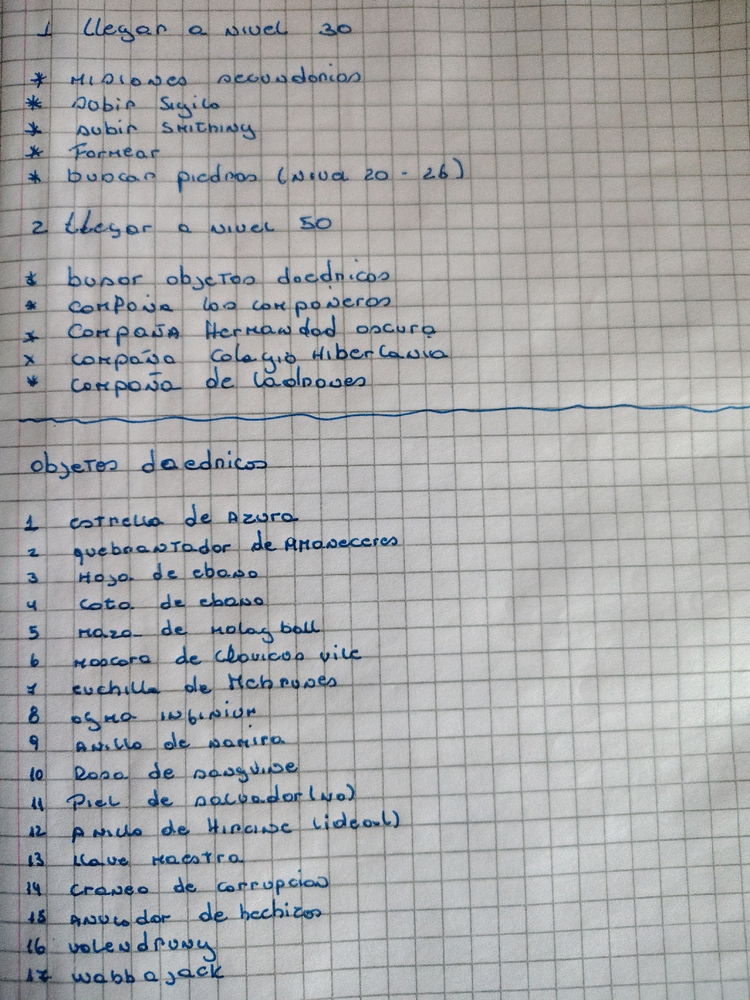 1 Llegar a nivel 30
* Misiones secundarias
* Subir Sigilo
* Subir Smithing
* Formear
* buscar piedras (nivel 20 - 26)
2 Llegar a nivel 50
* busar objetos daedricos
* Compaña los compañeros
* Compaña Hermandad oscura
* Compaña Colagio Hibernalia
* Compaña de Ladrones
objetos daedricos
1 estrella de Azura
2 quebrantador de Amaneceres
3 Hoja de ebano
4 cota de ebano
5 maza de molag ball
6 mascara de Clavicus vile
7 cuchilla de Mehrunes
8 ogma infinium
9 Anillo de namira
10 Rosa de sanguine
11 Piel de salvador (no)
12 Anillo de Hircine (ideal)
13 llave maestra
14 Craneo de corrupcion
15 Anulador de hechizos
16 volendrung
17 wabbajack